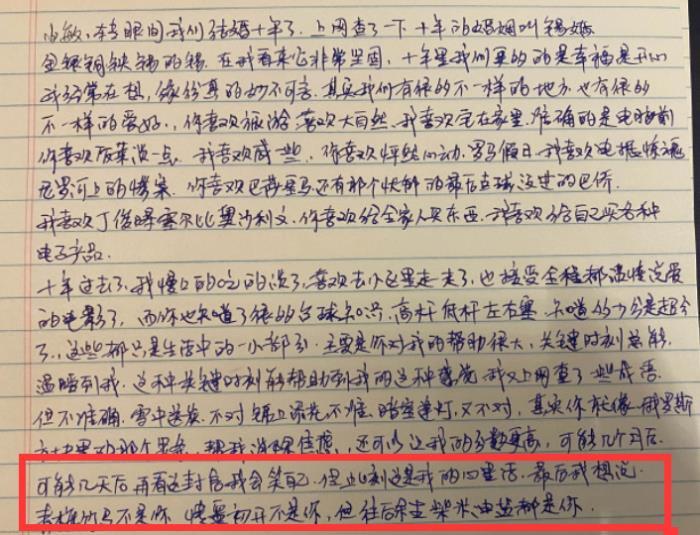 小敏,转眼间我们结婚十年了.上网查了一下十年的婚姻叫锡婚
金银铜铁锡的锡.在我看来它非常坚固,十年里我们更多的是幸福是开心
我经常在想,缘份真的妙不可言.其实我们有很多不一样的地方.也有很多
不一样的爱好.,你喜欢旅游喜欢大自然.我喜欢宅在家里.准确的是电脑前
你喜欢饭菜淡一点.我喜欢咸一些.你喜欢怦然心动.罗马假日.我喜欢电锯惊魂
尼罗河上的惨案.你喜欢巴蒂 还有那个 的最后点球没进的巴乔.
我喜欢丁俊晖塞尔比奥沙利文.你喜欢给全家人买东西.我喜欢给自己买各种
电子产品.
十年过去了.我慢慢的吃的淡了,喜欢去小区里走一走了,也接受全程都温情浪漫
的电影了,而你也知道了很多台球知识.高杆低杆左右塞.知道 多少分是超分
了.,这些都只是生活中的一小部分.主要是你对我的帮助很大,关键时刻总能
温暖到我.这种关键时刻能帮助到我的这种感觉.我又上网查了一些成语.
但不准确.雪中送炭.不对锦上添花不准.暗室逢灯,又不对,其实你就像俄罗斯
方块里的那个 .帮我消除焦虑,还可以让我的分数更高,可能几个月后.
可能几天后再看这封信我会笑自己.但此刻这是我的心里话.最后我想说.
青梅竹马不是你 情窦初开不是你,但往后余生柴米油盐都是你.